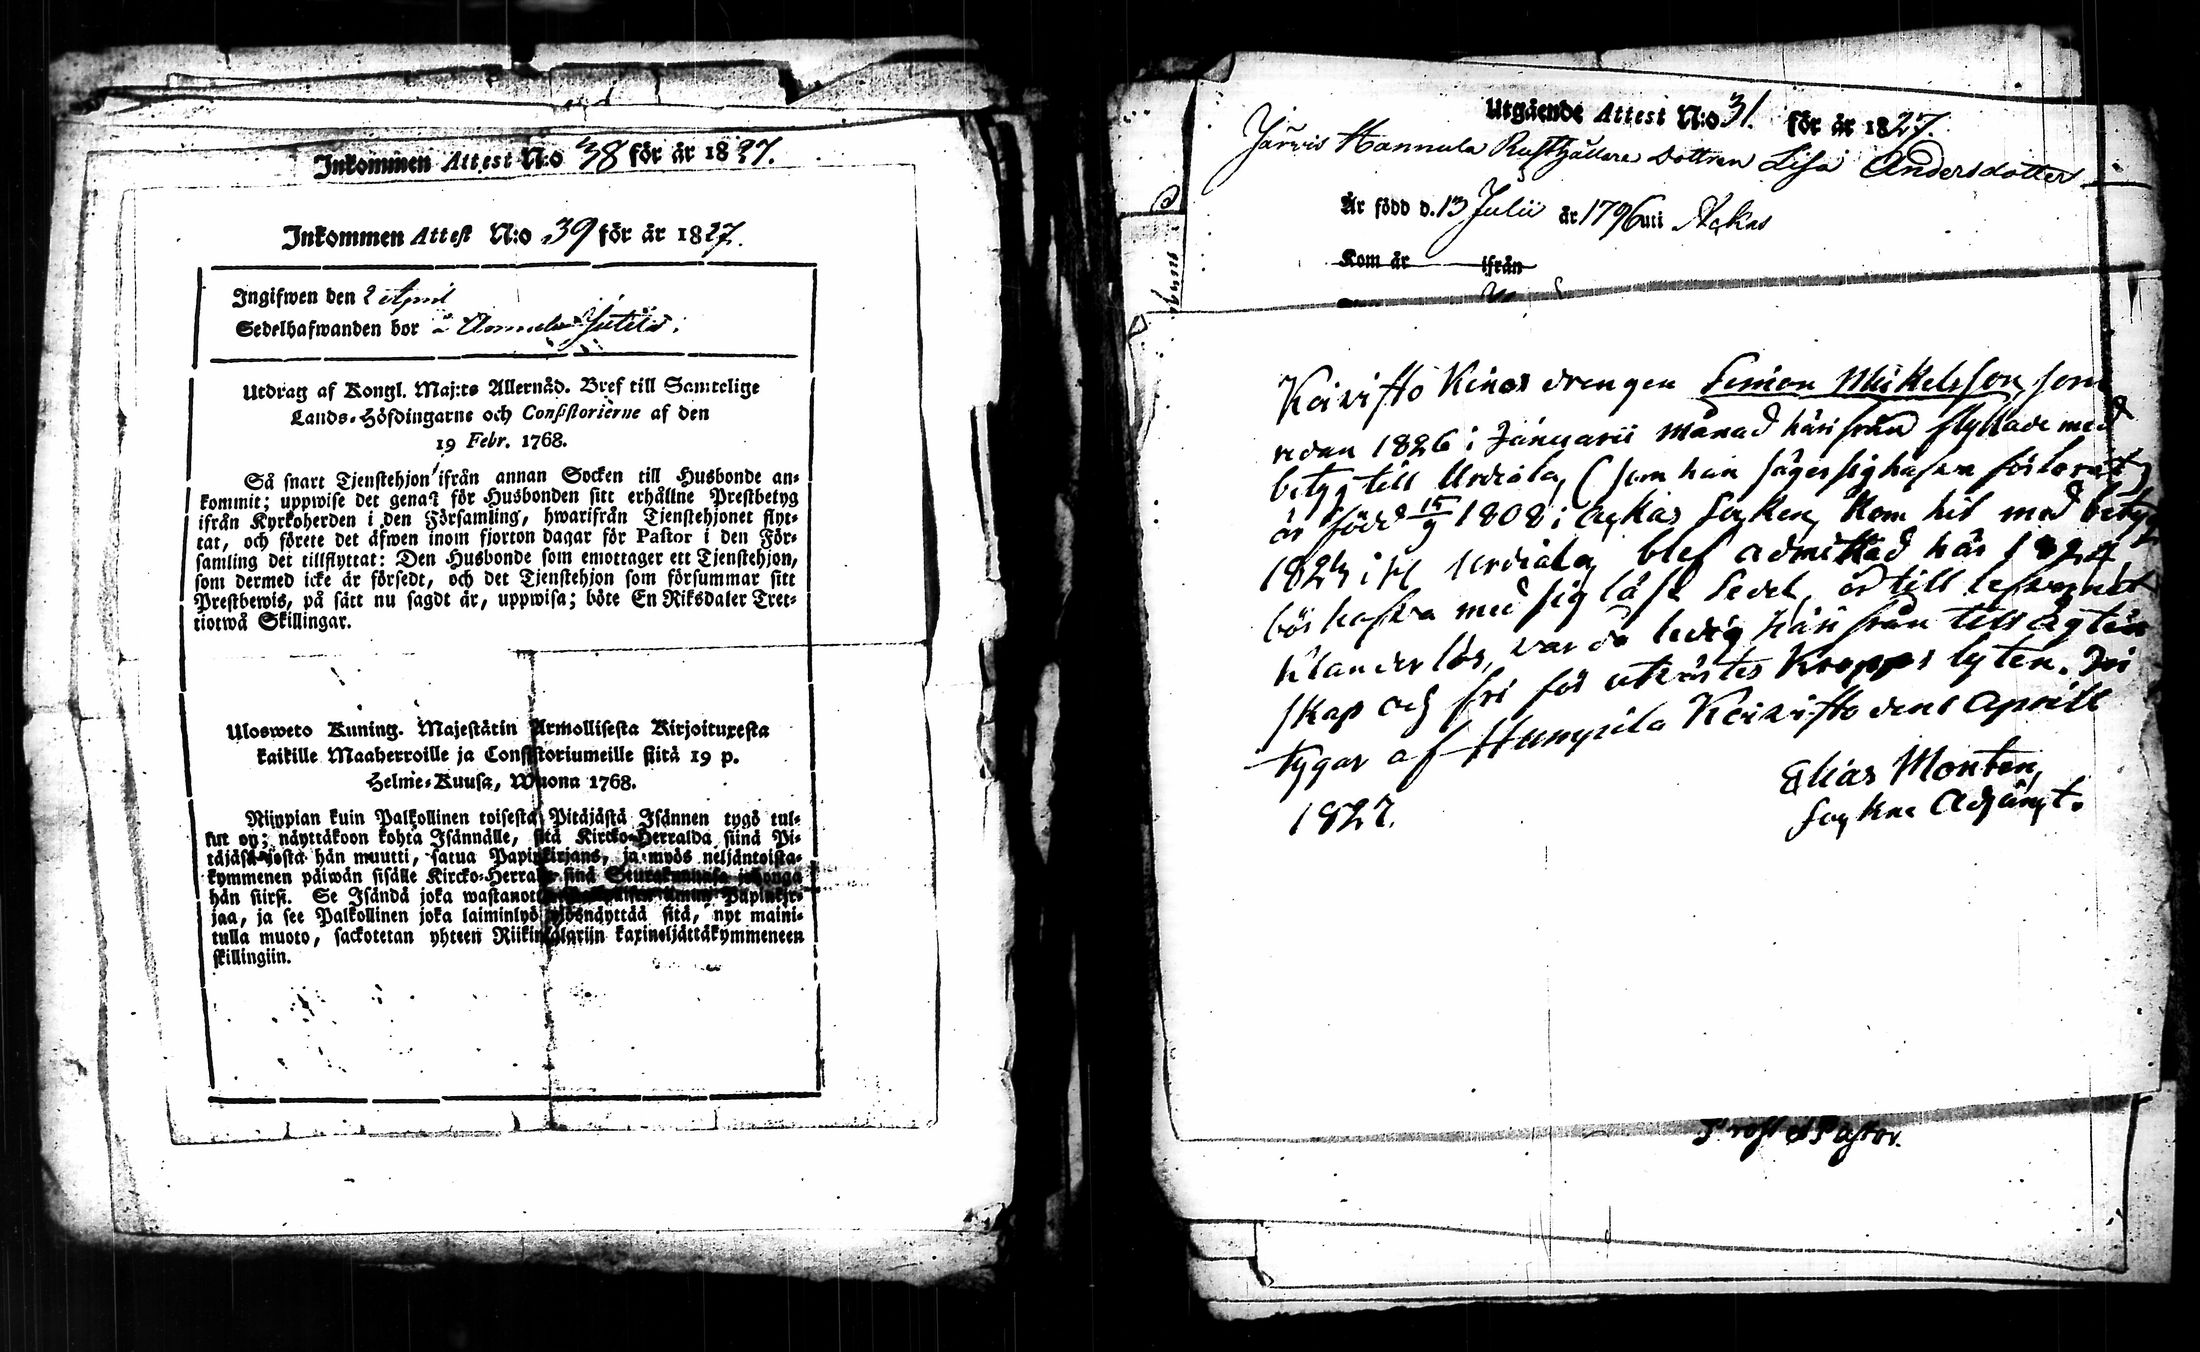 Inkommen Attest N:o 38 för år 1827.
Inkommen Attest N:o 39 för år 1827.
Ingifwen den 2 April
Sedelhafwanden bor å Annula Jutila.
Utdrag af Kongl. Maj:ts Allernåd. Bref till Samtelige
Lands-Höfdingarne och Consistorierne af den
19 Febr. 1768.
Så snart Tjenstehjon ifrån annan Socken till Husbonde an-
kommit; uppwise det genast för Husbonden sitt erhållne Prestbetyg
ifrån Kyrkoherden i den Församling, hwarifrån Tjenstehjonet flyt-
tat, och förete det äfwen inom fjorton dagar för Pastor i den För-
samling det tillflyttat: Den Husbonde som emottager ett Tjenstehjon,
som dermed icke är försedt, och det Tjenstehjon som försummar sitt
Prestbewis, på sätt nu sagdt är, uppwisa; böte En Riksdaler Tret-
tiotwå Skillingar.
Ulosweto Kuning. Majestätin Armollisesta Kirjoituxesta
kaikille Maaherroille ja Consistoriumeille siitä 19 p.
Helme-Kuusa, Wuona 1768.
Niippian kuin Palkollinen toisesta Pitäjästä Isännen tygö tul-
lut on; näyttäkoon kohta Isännälle, sitä Kircko-Herralda siinä Pi-
täjäsä josta hän muutti, satua Papinkirjans, ja myös neljäntoista-
kymmenen päiwän sisälle Kircko-Herralle siinä Seurakunnasa johonga
hän siirsi. Se Isändä joka wastanotta Papinkir-
jaa, ja see Palkollinen joka laiminlyö ylösnäyttää sitä, nyt maini-
tulla muoto, sackotetan yhteen Riikintalariin kaxineljättäkymmeneen
skillingiin.
Utgående Attest N:o 31. för år 1827.
Järvis Hannula Rusthållare Dottren Lisa Andersdotter
Är född d. 13 Julii år 1796 uti Ackas
Kom år ifrån
Koivisto Kinos drengen Simon Mickelsson, som
redan 1826 i Januarii månad härifrån flyttade med
betyg till Urdiala, (som han säger sig hafva förlorat)
är född 15/9 1808 i Ackas Socken, kom hit med betyg
1824 ifr Urdiala, blef admitterad här 1824
bör hafva med sig läse Sedel, är till lefvernet
klanderlös, var då ledig härifrån till ägten
skap och fri för utvärtes kropps lyten. Be
tygar af Humpila Koivisto den 1 April
1827.
Elias Monten,
Sockne Adjunct.
Prost et Pastor.